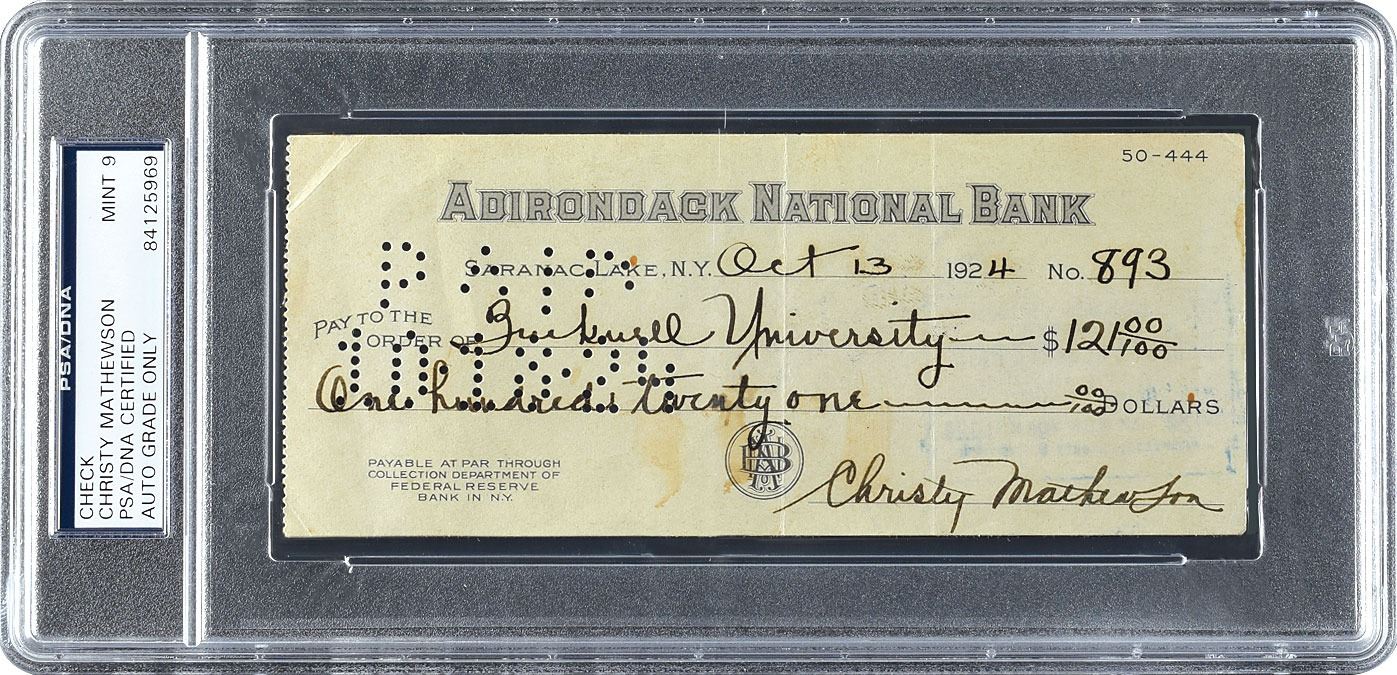 PSA/DNA
CHECK MINT 9
CHRISTY MATHEWSON
PSA/DNA CERTIFIED
AUTO GRADE ONLY 84125969
50-444
ADIRONDACK NATIONAL BANK
SARANAC LAKE, N.Y. Oct 13 1924 No. 893
PAY TO THE
ORDER OF Bucknell University $121 00/100
One hundred twenty one 00/100 DOLLARS
PAYABLE AT PAR THROUGH
COLLECTION DEPARTMENT OF
FEDERAL RESERVE
BANK IN N.Y.
Christy Mathewson